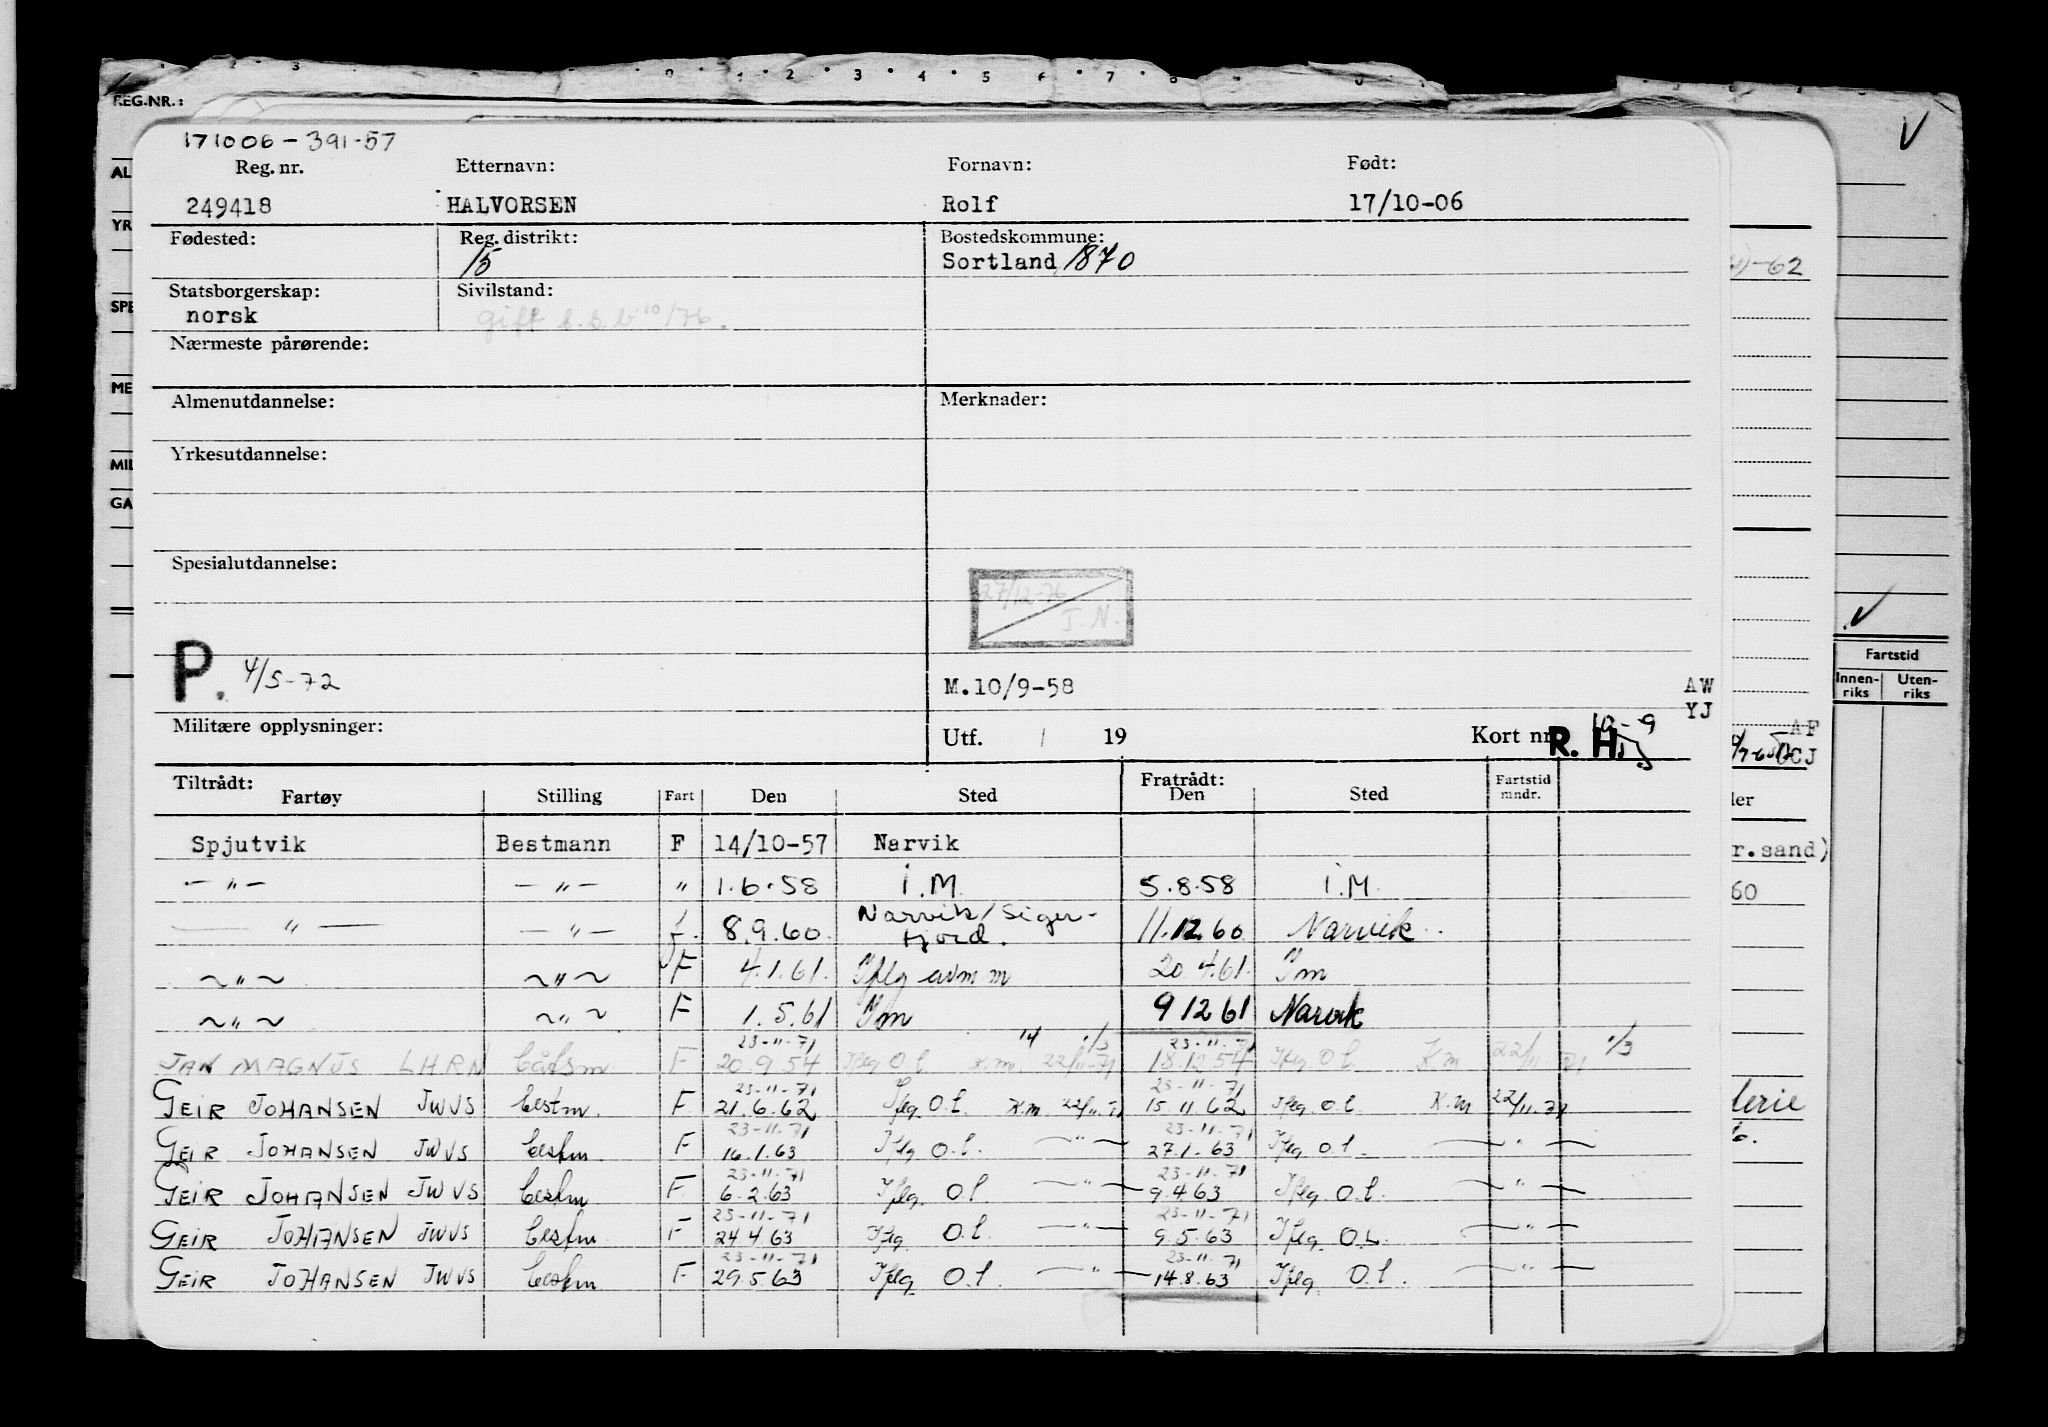 REG.NR.:
171006-391-57
Reg. nr. Etternavn: Fornavn: Født:
249418 HALVORSEN Rolf 17/10-06
Fødested: Reg. distrikt: Bostedskommune:
15 Sortland, 1870
Statsborgerskap: Sivilstand:
norsk gift s.s.b 10/76.
Nærmeste pårørende:
Almenutdannelse: Merknader:
Yrkesutdannelse:
Spesialutdannelse:
27/12-76
T.N.
P. 4/5-72
M.10/9-58 AW
YJ
Militære opplysninger: Utf. / 19 Kort nr. R. H.
Tiltrådt: Fratrådt:
Fartøy Stilling Fart Den Sted Den Sted Fartstid mndr.
Spjutvik Bestmann F 14/10-57 Narvik
— " — — " — " 1.6.58 I.M. 5.8.58 I.M.
— " — — " — f. 8.9.60 Narvik/Siger-
fjord. 11.12.60 Narvik
~ " ~ ~ " ~ F 4.1.61. Iflg avm m 20.4.61. Im
~ " ~ ~ " ~ F 1.5.61 Im 9 12 61 Narvik
23-11-71 23-11-71
JAN MAGNUS LHRN båtsm F 20.9.54 Iflg O.l. K.m. 22/11-71 18.12.54 Iflg O.l. K m 22/11-71
23-11-71 23-11-71
GEIR JOHANSEN JWVS bestm. F 21.6.62 Iflg. O.l. K.m. 22/11-71 15.11.62 Iflg. o.l. K.m 22/11-71
23-11-71 23-11-71
GEIR JOHANSEN JWVS bestm. F 16.1.63 Iflg O.l. — " — 27.1.63 Iflg O.l. — " —
23-11-71 23-11-71
GEIR JOHANSEN JWVS bestm F 6.2.63 Iflg. O.l — " — 9.4.63 Iflg. O.l. — " —
23-11-71 23-11-71
GEIR JOHANSEN JWVS bestm F 24.4.63 Iflg. O.l. — " — 9.5.63 Iflg. O.L. — " —
23-11-71 23-11-71
GEIR JOHANSEN JWVS bestm F 29.5.63 Iflg. O.l. — " — 14.8.63 Iflg. O.l. — " —
Fartstid
Innen-riks Uten-riks
AF
CJ
r.sand)
60